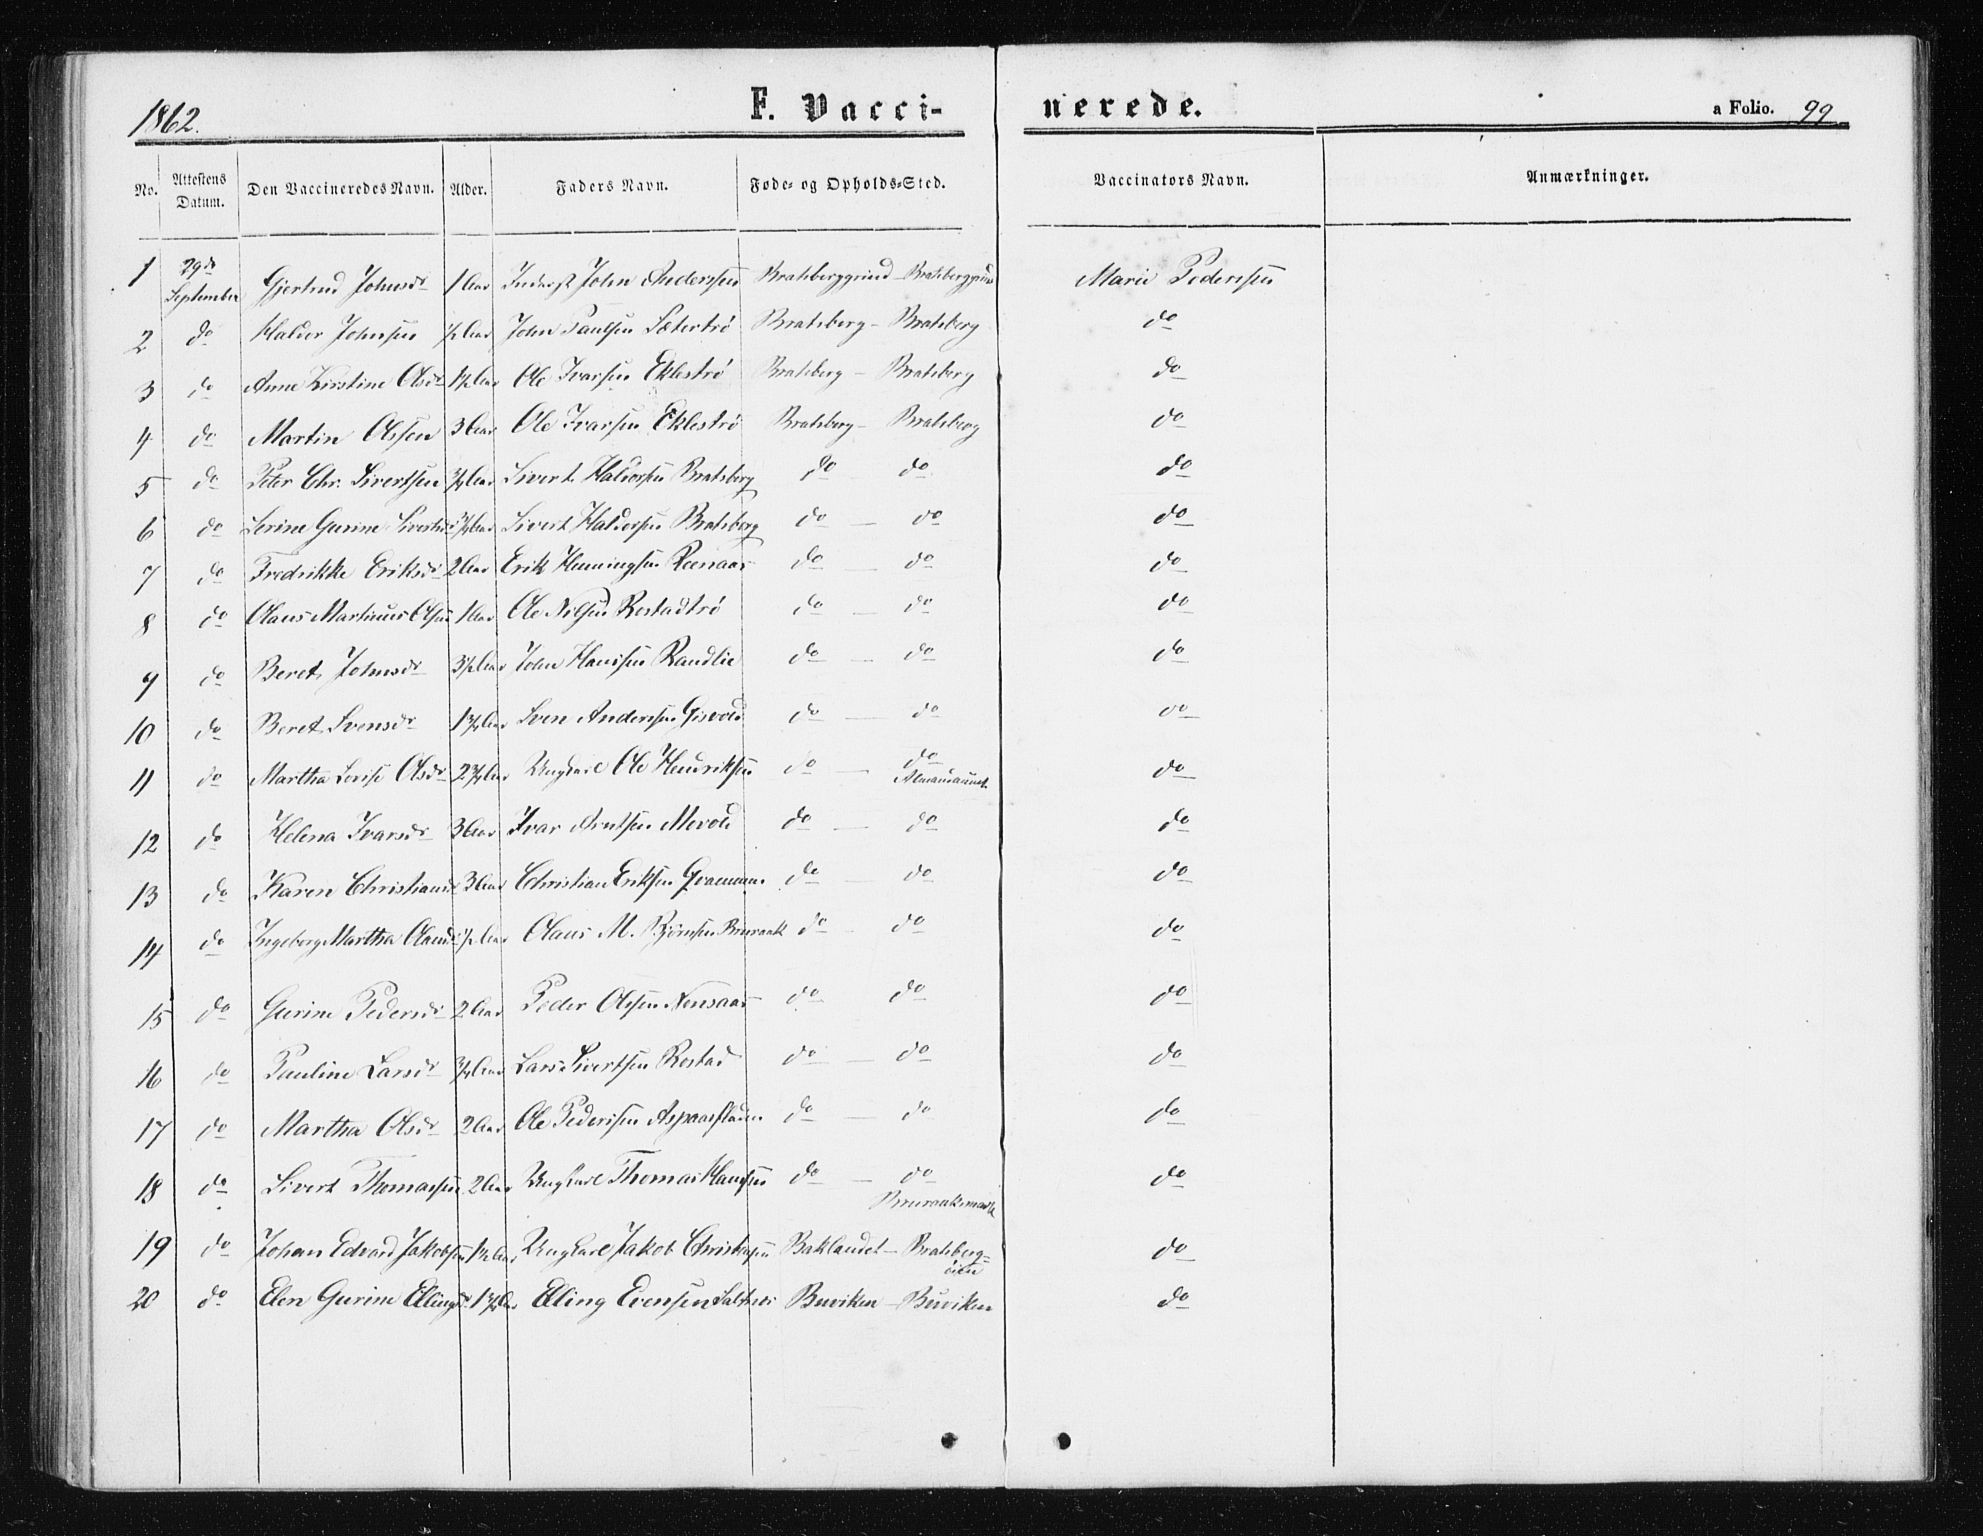 1862. F. Vacci- nerede. a Folio. 99
No. Attestens Datum. Den Vaccineredes Navn. Alder. Faders Navn. Føde- og Opholds-Sted. Vaccinators Navn. Anmærkninger.
1 29de September Gjertrud Johnsdr 1 Aar Inderst John Anderssen Bratsberggrind - Bratsberggrind Marie Pederssen
2 do Haldor Johnsen ½ Aar John Paulsen Sætertrø Bratsberg - Bratsberg do
3 do Anne Kirstine Olsdr 1½ Aar Ole Ivarsen Eklestrø Bratsberg - Bratsberg do
4 do Martin Olssen 3 Aar Ole Ivarsen Eklestrø Bratsberg - Bratsberg do
5 do Peter Chr. Sivertsen ¾ Aar Sivert Haldorsen Bratsberg do do do
6 do Serine Gurine Sivertsdr ¾ Aar Sivert Haldorsen Bratsberg do - do do
7 do Fredrikke Eriksdr 2 Aar Erik Henningsen Reenaas do - do do
8 do Olaus Martinus Olsen 1 Aar Ole Nilsen Rostadtrø do - do do
9 do Beret Johnsdr 3½ Aar John Hansen Randlie do - do do
10 do Beret Svensdr 1¾ Aar Sven Anderssen Gisvold do - do do
11 do Martha Lovise Olsdr 2¾ Aar Ungkarl Ole Hendriksen do - do do
12 do Helena Ivarsdr 3 Aar Ivar Arntsen Movold do - do do
13 do Karen Christiansdr 3 Aar Christian Eriksen do - do do
14 do Ingeborg Martha Olausdr ½ Aar Olaus M. Bjørnsen Bruraak do - do do
15 do Gurine Pedersdr 2 Aar Peder Olssen Nonsaas do do do
16 do Pauline Larsdr ¾ Aar Lars Sivertsen Rostad do - do do
17 do Martha Olsdr 2 Aar Ole Pederssen Aspaasfladen do - do do
18 do Sivert Thomassen 2 Aar Ungkarl Thomas Hansen do - do Bruraaksmark do
19 do Johan Edvard Jakobsen 1½ Aar Ungkarl Jakob Baklandet - Bratsberg- do
20 do Elen Gurine Ellingsdr 1¾ Aar Elling Evensen Saltnes Buviken - Buviken do